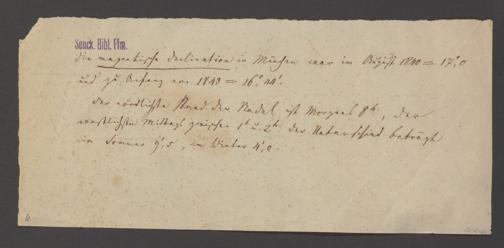 Senck. Bibl. Ffm.
Die magnetische Declination in München war im August 1840 = 17°,0
und zu Anfang von 1843 = 16° 44'.
Der nördlichste Stand der Nadel ist Morgens 8h, der
westlichste Mittags zwischen 1h u. 2h, der Unterschied beträgt
im Sommer 9',5, im Winter 4',0.